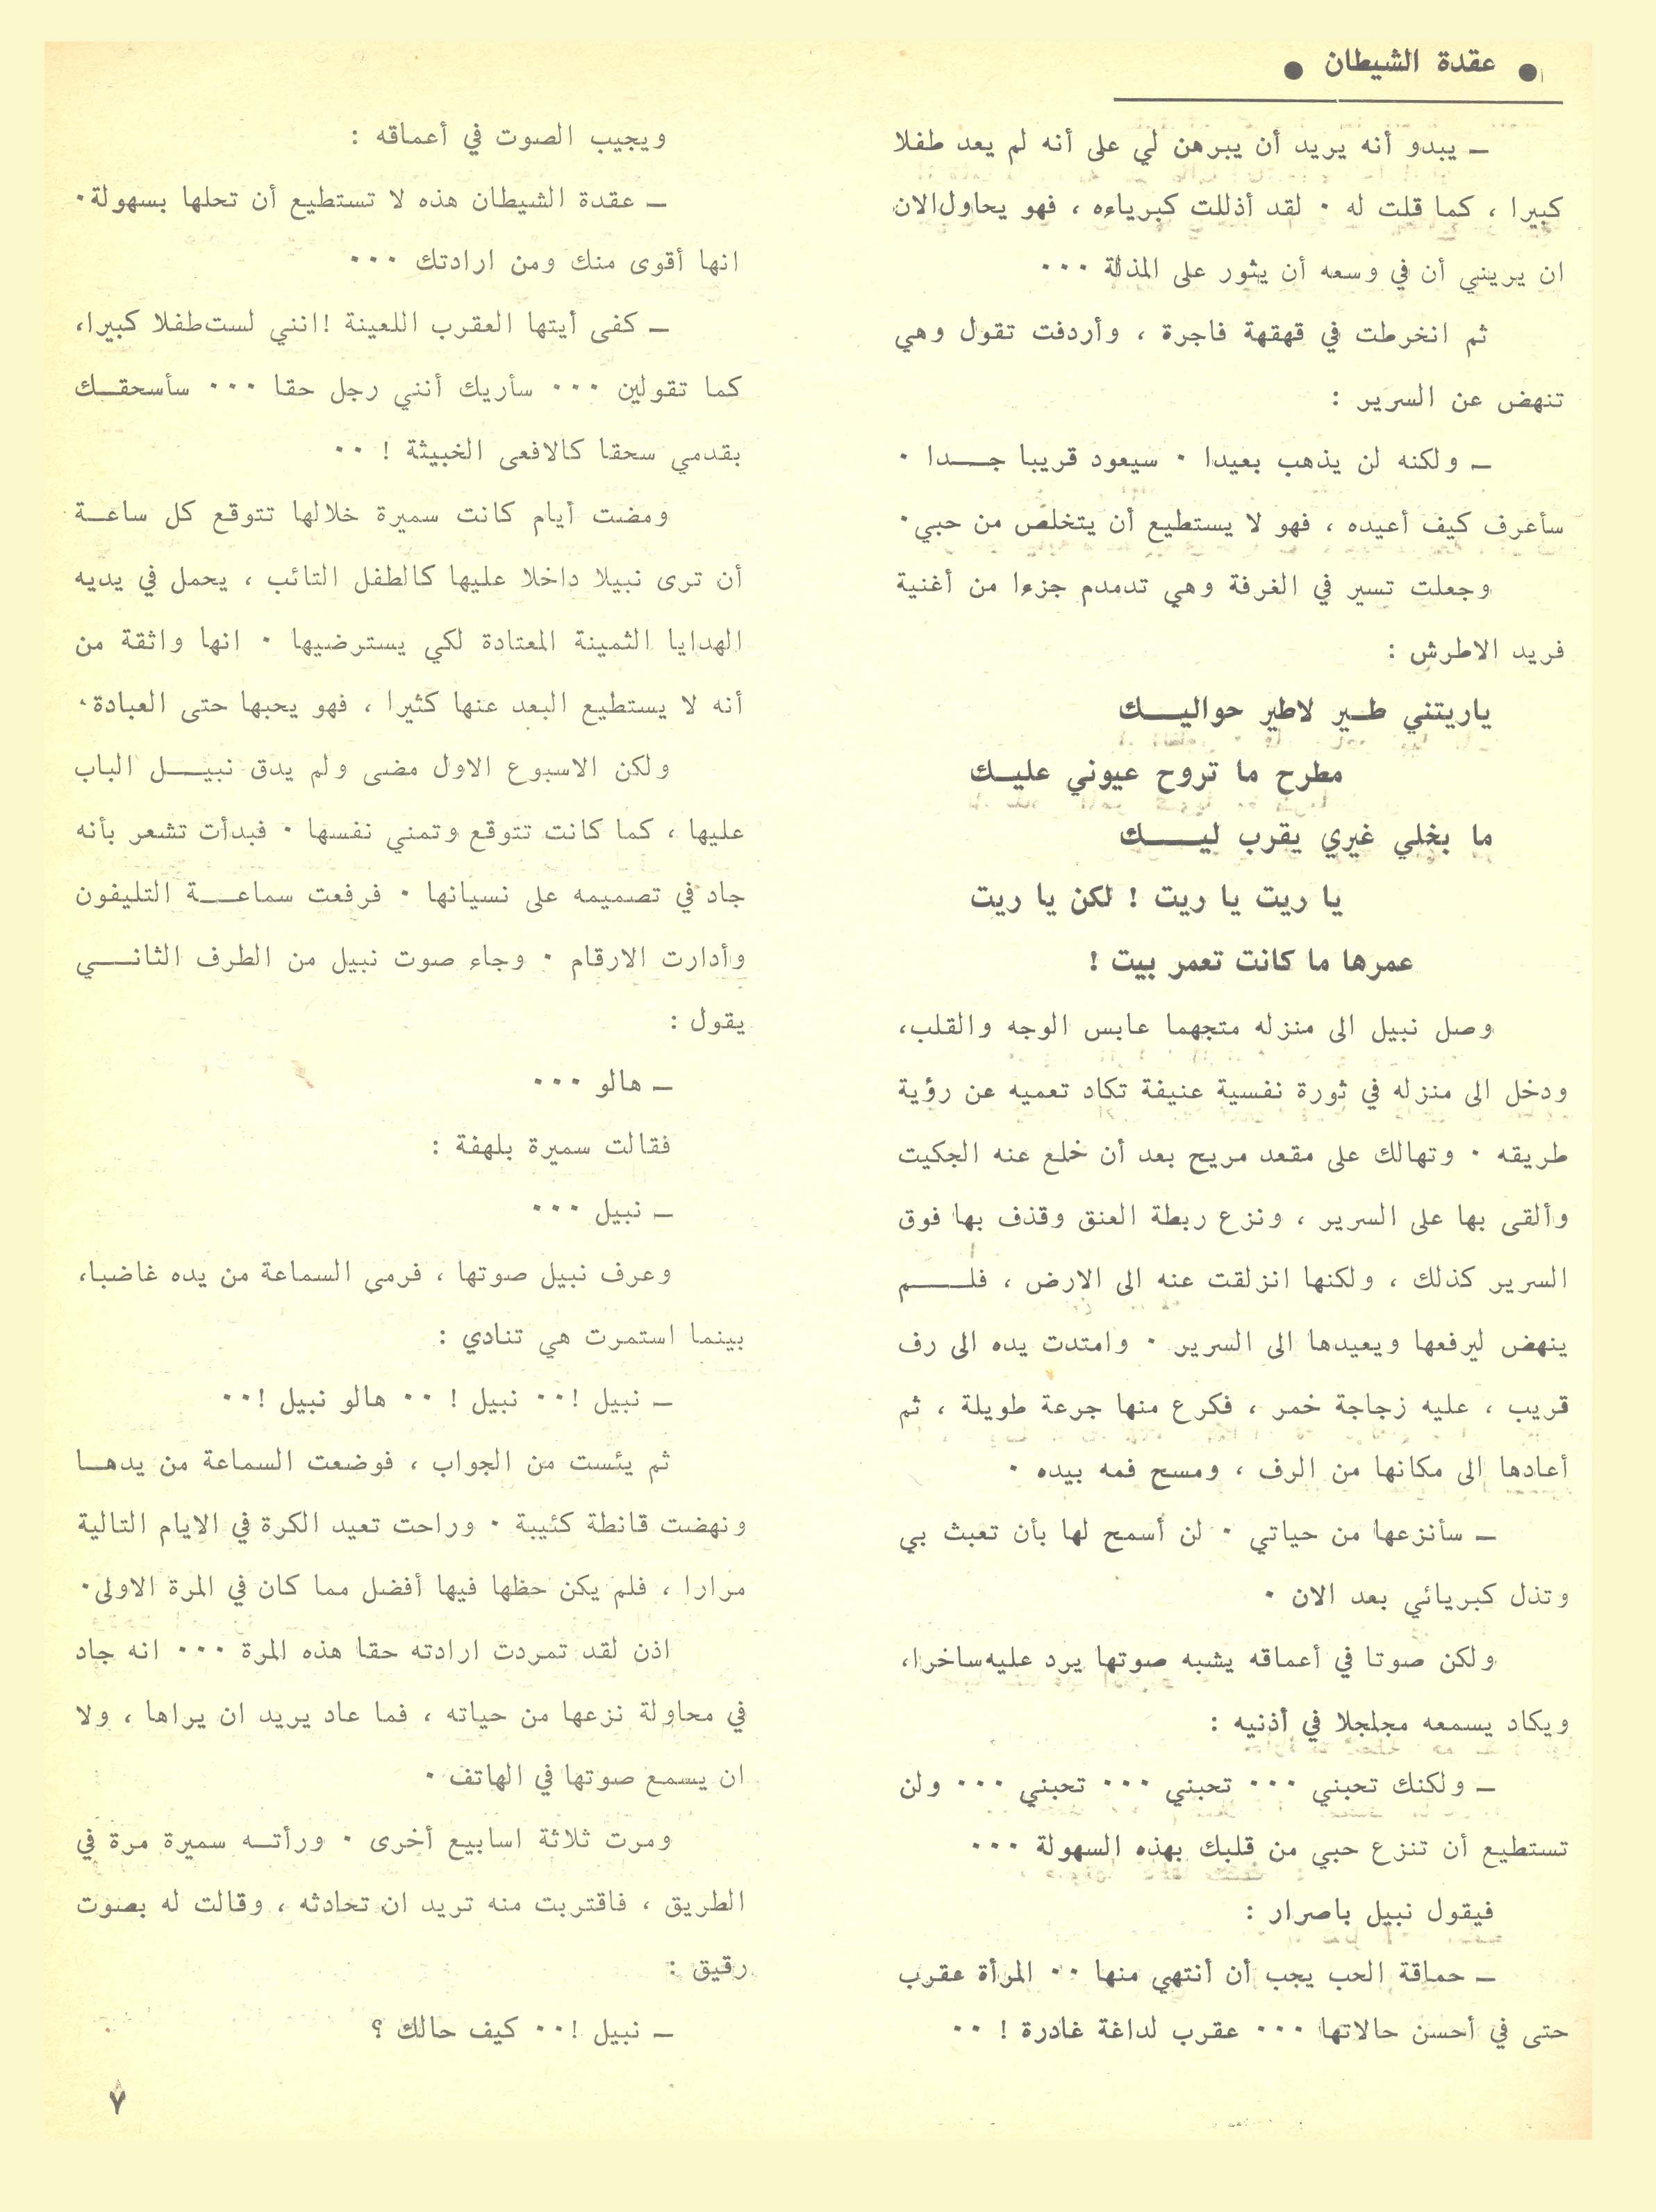 ● عقدة الشيطان ●
ـ يبدو أنه يريد أن يبرهن لي على أنه لم يعد طفلا
كبيرا ، كما قلت له ٠ لقد أذللت كبرياءه ، فهو يحاول الان
ان يريني أن في وسعه أن يثور على المذلة ٠٠٠
ثم انخرطت في قهقهة فاجرة ، وأردفت تقول وهي
تنهض عن السرير :
ـ ولكنه لن يذهب بعيدا ٠ سيعود قريبا جـــدا ٠
سأعرف كيف أعيده ، فهو لا يستطيع أن يتخلص من حبي٠
وجعلت تسير في الغرفة وهي تدمدم جزءا من أغنية
فريد الاطرش :
ياريتني طـير لاطير حواليـــك
مطرح ما تروح عيوني عليـك
ما بخلي غيري يقرب ليـــك
يا ريت يا ريت ! لكن يا ريت
عمرها ما كانت تعمر بيت !
وصل نبيل الى منزله متجهما عابس الوجه والقلب،
ودخل الى منزله في ثورة نفسية عنيفة تكاد تعميه عن رؤية
طريقه ٠ وتهالك على مقعد مريح بعد أن خلع عنه الجكيت
وألقى بها على السرير ، ونزع ربطة العنق وقذف بها فوق
السرير كذلك ، ولكنها انزلقت عنه الى الارض ، فلـــم
ينهض ليرفعها ويعيدها الى السرير ٠ وامتدت يده الى رف
قريب ، عليه زجاجة خمر ، فكرع منها جرعة طويلة ، ثم
أعادها الى مكانها من الرف ، ومسح فمه بيده ٠
ـ سأنزعها من حياتي ٠ لن أسمح لها بأن تعبث بي
وتذل كبريائي بعد الان ٠
ولكن صوتا في أعماقه يشبه صوتها يرد عليه ساخرا،
ويكاد يسمعه مجلجلا في أذنيه :
ـ ولكنك تحبني ٠٠٠ تحبني ٠٠٠ تحبني ٠٠٠ ولن
تستطيع أن تنزع حبي من قلبك بهذه السهولة ٠٠٠
فيقول نبيل باصرار :
ـ حماقة الحب يجب أن أنتهي منها ٠٠ المرأة عقرب
حتى في أحسن حالاتها ٠٠٠ عقرب لداغة غادرة ! ٠٠
ويجيب الصوت في أعماقه :
ـ عقدة الشيطان هذه لا تستطيع أن تحلها بسهولة٠
انها أقوى منك ومن ارادتك ٠٠٠
ـ كفى أيتها العقرب اللعينة ! انني لست طفلا كبيرا،
كما تقولين ٠٠٠ سأريك أنني رجل حقا ٠٠٠ سأسحقـك
بقدمي سحقا كالافعى الخبيثة ! ٠٠
ومضت أيام كانت سميرة خلالها تتوقع كل ساعـة
أن ترى نبيلا داخلا عليها كالطفل التائب ، يحمل في يديه
الهدايا الثمينة المعتادة لكي يسترضيها ٠ انها واثقة من
أنه لا يستطيع البعد عنها كثيرا ، فهو يحبها حتى العبادة٠
ولكن الاسبوع الاول مضى ولم يدق نبيـــل الباب
عليها ، كما كانت تتوقع وتمني نفسها ٠ فبدأت تشعر بأنه
جاد في تصميمه على نسيانها ٠ فرفعت سماعـــة التليفون
وأدارت الارقام ٠ وجاء صوت نبيل من الطرف الثانـــي
يقول :
ـ هالو ٠٠٠
فقالت سميرة بلهفة :
ـ نبيل ٠٠٠
وعرف نبيل صوتها ، فرمى السماعة من يده غاضبا،
بينما استمرت هي تنادي :
ـ نبيل !٠٠ نبيل ! ٠٠ هالو نبيل !٠٠
ثم يئست من الجواب ، فوضعت السماعة من يدهـا
ونهضت قانطة كئيبة ٠ وراحت تعيد الكرة في الايام التالية
مرارا ، فلم يكن حظها فيها أفضل مما كان في المرة الاولى٠
اذن لقد تمردت ارادته حقا هذه المرة ٠٠٠ انه جاد
في محاولة نزعها من حياته ، فما عاد يريد ان يراها ، ولا
ان يسمع صوتها في الهاتف ٠
ومرت ثلاثة اسابيع أخرى ٠ ورأتـه سميرة مرة في
الطريق ، فاقتربت منه تريد ان تحادثه ، وقالت له بصوت
رقيق :
ـ نبيل !٠٠ كيف حالك ؟
٧